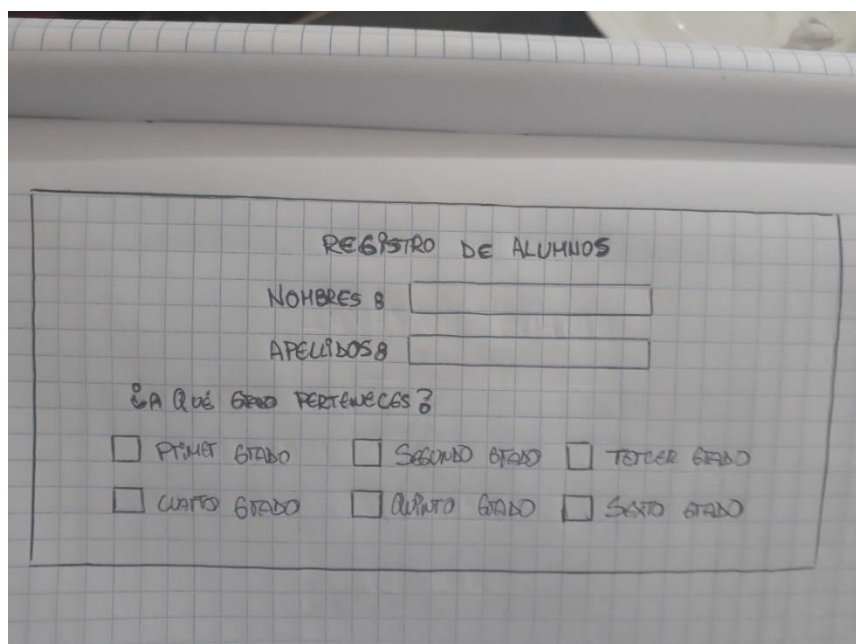 REGISTRO DE ALUMNOS
NOMBRES :
APELLIDOS :
¿A QUÉ GRADO PERTENECES?
PRIMER GRADO SEGUNDO GRADO TERCER GRADO
CUARTO GRADO QUINTO GRADO SEXTO GRADO